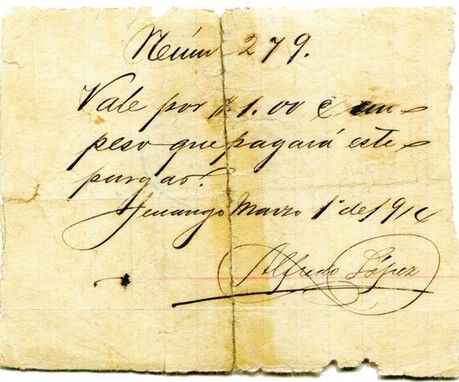 Núm 279.
Vale por $1.00 un
peso que pagará este
juzgado.
Tenango Marzo 1º de
Alfredo López